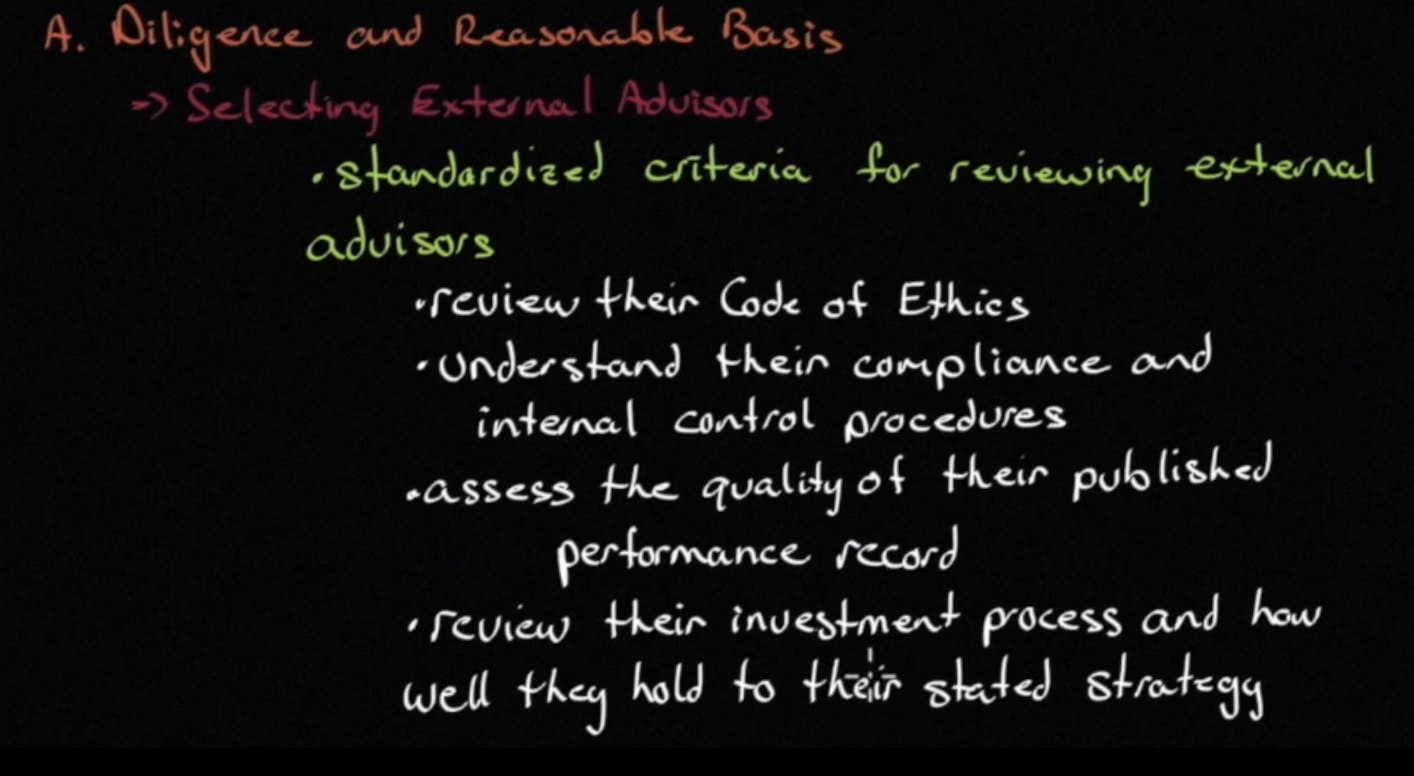 A. Diligence and Reasonable Basis
→ Selecting External Advisors
• standardized criteria for reviewing external
advisors
• review their Code of Ethics
• understand their compliance and
internal control procedures
• assess the quality of their published
performance record
• review their investment process and how
well they hold to their stated strategy